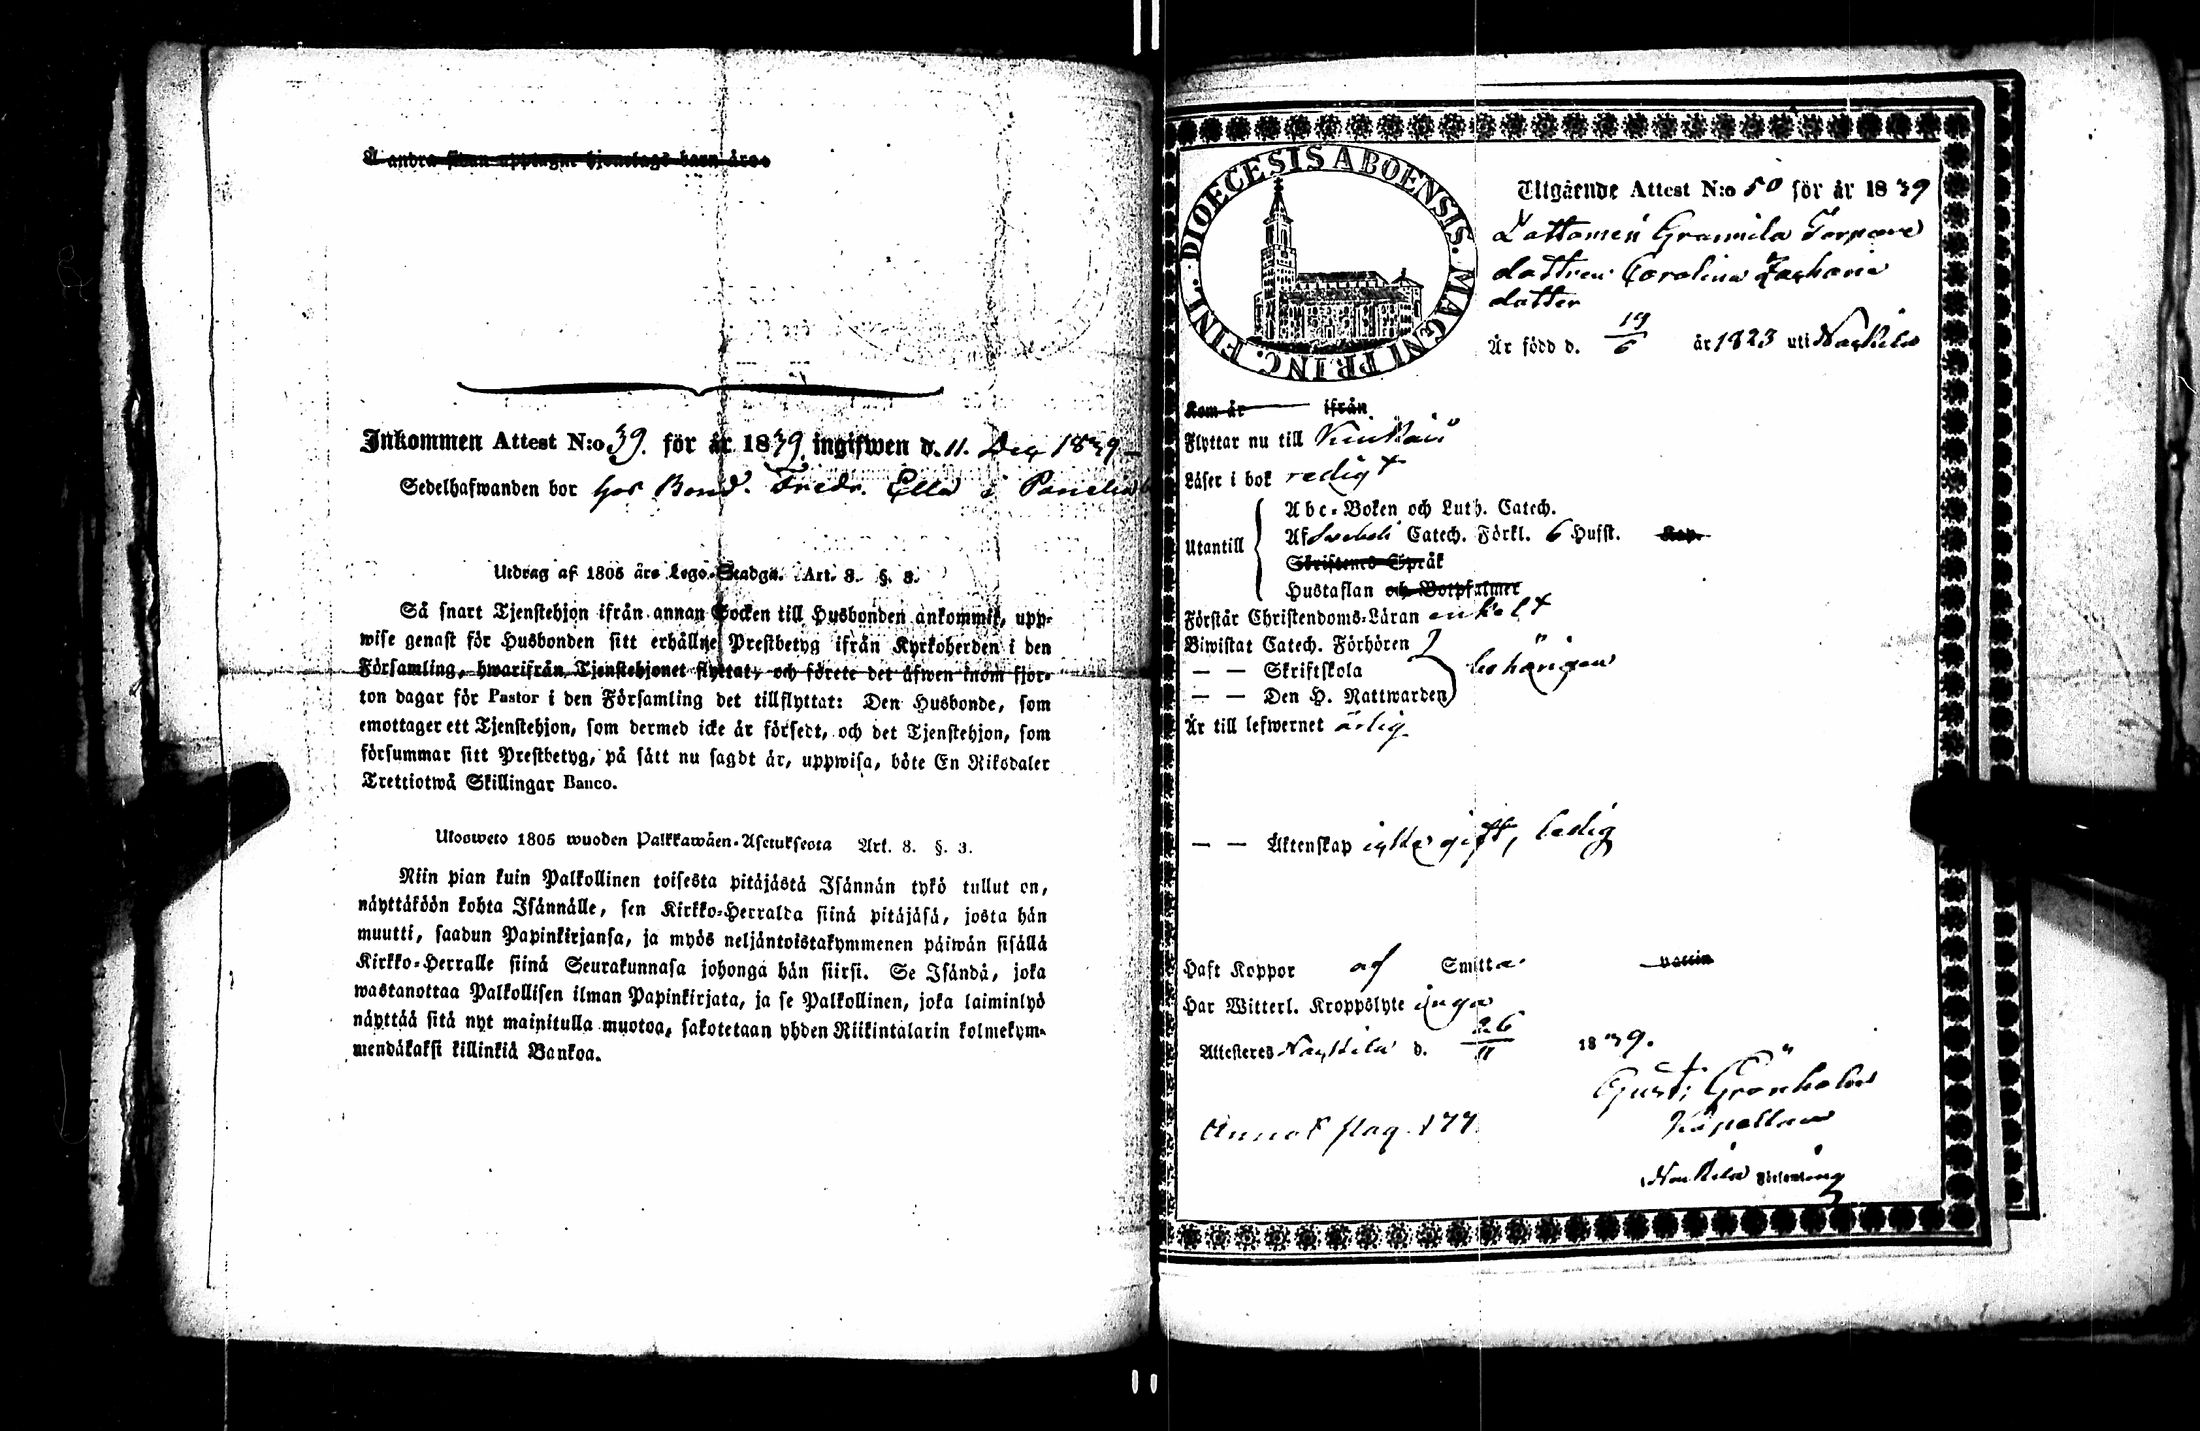 Å andra sidan upptagne hjonelags barn äro.
Inkommen Attest N:o 39. för år 1839 ingifwen d. 11. Dec 1839
Sedelhafwanden bor hos Bond. Fredr. Ella i Panelia
Utdrag af 1805 års Lego-Stadga. Art. 8. §. 3.
Så snart Tjenstehjon ifrån annan Socken till Husbonden ankommit, upp-
wise genast för Husbonden sitt erhållne Prestbetyg ifrån Kyrkoherden i den
Församling, hwarifrån Tjenstehjonet flyttat, och förete det äfwen inom fjor-
ton dagar för Pastor i den Församling det tillflyttat: Den Husbonde, som
emottager ett Tjenstehjon, som dermed icke är försedt, och det Tjenstehjon, som
försummar sitt Prestbetyg, på sätt nu sagdt är, uppwisa, böte En Riksdaler
Trettiotwå Skillingar Banco.
Ulosweto 1805 wuoden Palkkawäen-Asetuksesta Art. 8. §. 3.
Niin pian kuin Palkollinen toisesta pitäjästä Isännän tykö tullut on,
näyttäköön kohta Isännälle, sen Kirkko-Herralda siinä pitäjäsä, josta hän
muutti, saadun Papinkirjansa, ja myös neljäntoistakymmenen päiwän sisällä
Kirkko-Herralle siinä Seurakunnasa johonga hän siirsi. Se Isändä, joka
wastanottaa Palkollisen ilman Papinkirjata, ja se Palkollinen, joka laiminlyö
näyttää sitä nyt mainitulla muotoa, sakotetaan yhden Riikintalarin kolmekym-
mendäkaksi killinkiä Bankoa.
DIOECESIS ABOENSIS. MAGNI PRINC. FINL.
Utgående Attest N:o 50 för år 1839
Lattomeri Grannila Torpare
dottren Carolina Zacharia
dotter
Är född d. 19/6 år 1823 uti Nackila
Kom år ifrån
Flyttar nu till Kiukais
Läser i bok redigt
Utantill
Abc-Boken och Luth. Catech.
Af Svebeli Catech. Förkl. 6 Hufst. Kap.
Skriftenes Språk
Hustaflan och Botpsalmer
Förstår Christendoms-Läran enkelt
Biwistat Catech. Förhören
— — Skriftskola behörigen
— — Den H. Nattwarden
Är till lefwernet ärlig.
— — Äktenskap icke gift, ledig
Haft Koppor af Smitta. Vaccin
Har Witterl. Kroppslyte inga
Attesteres Nackila d. 26/11 1839.
Gust. Grönholm
Kapellan
Annot. pag. 177.
Nackila Församling